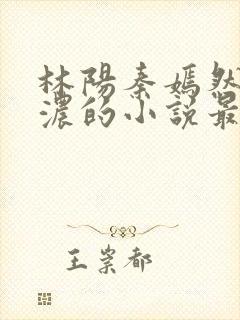 林陽秦嫣然
濃的小說最
王崇都